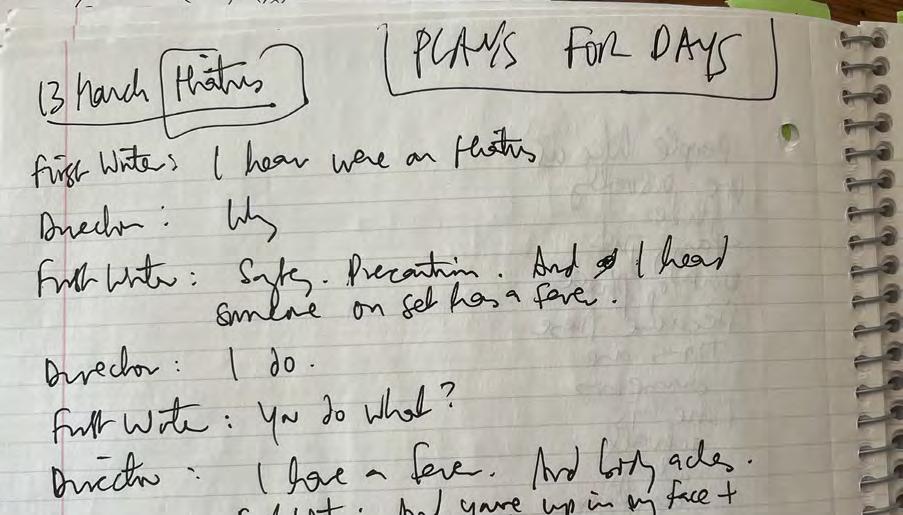 PLANS FOR DAYS
13 March Hiatus
First Writer: I hear were on Hiatus
Director: Why
First Writer: Safety. Precaution. And I heard
someone on set has a fever.
Director: I do.
First Writer: You do what?
Director: I have a fever. And body aches.
And youre up in my face +